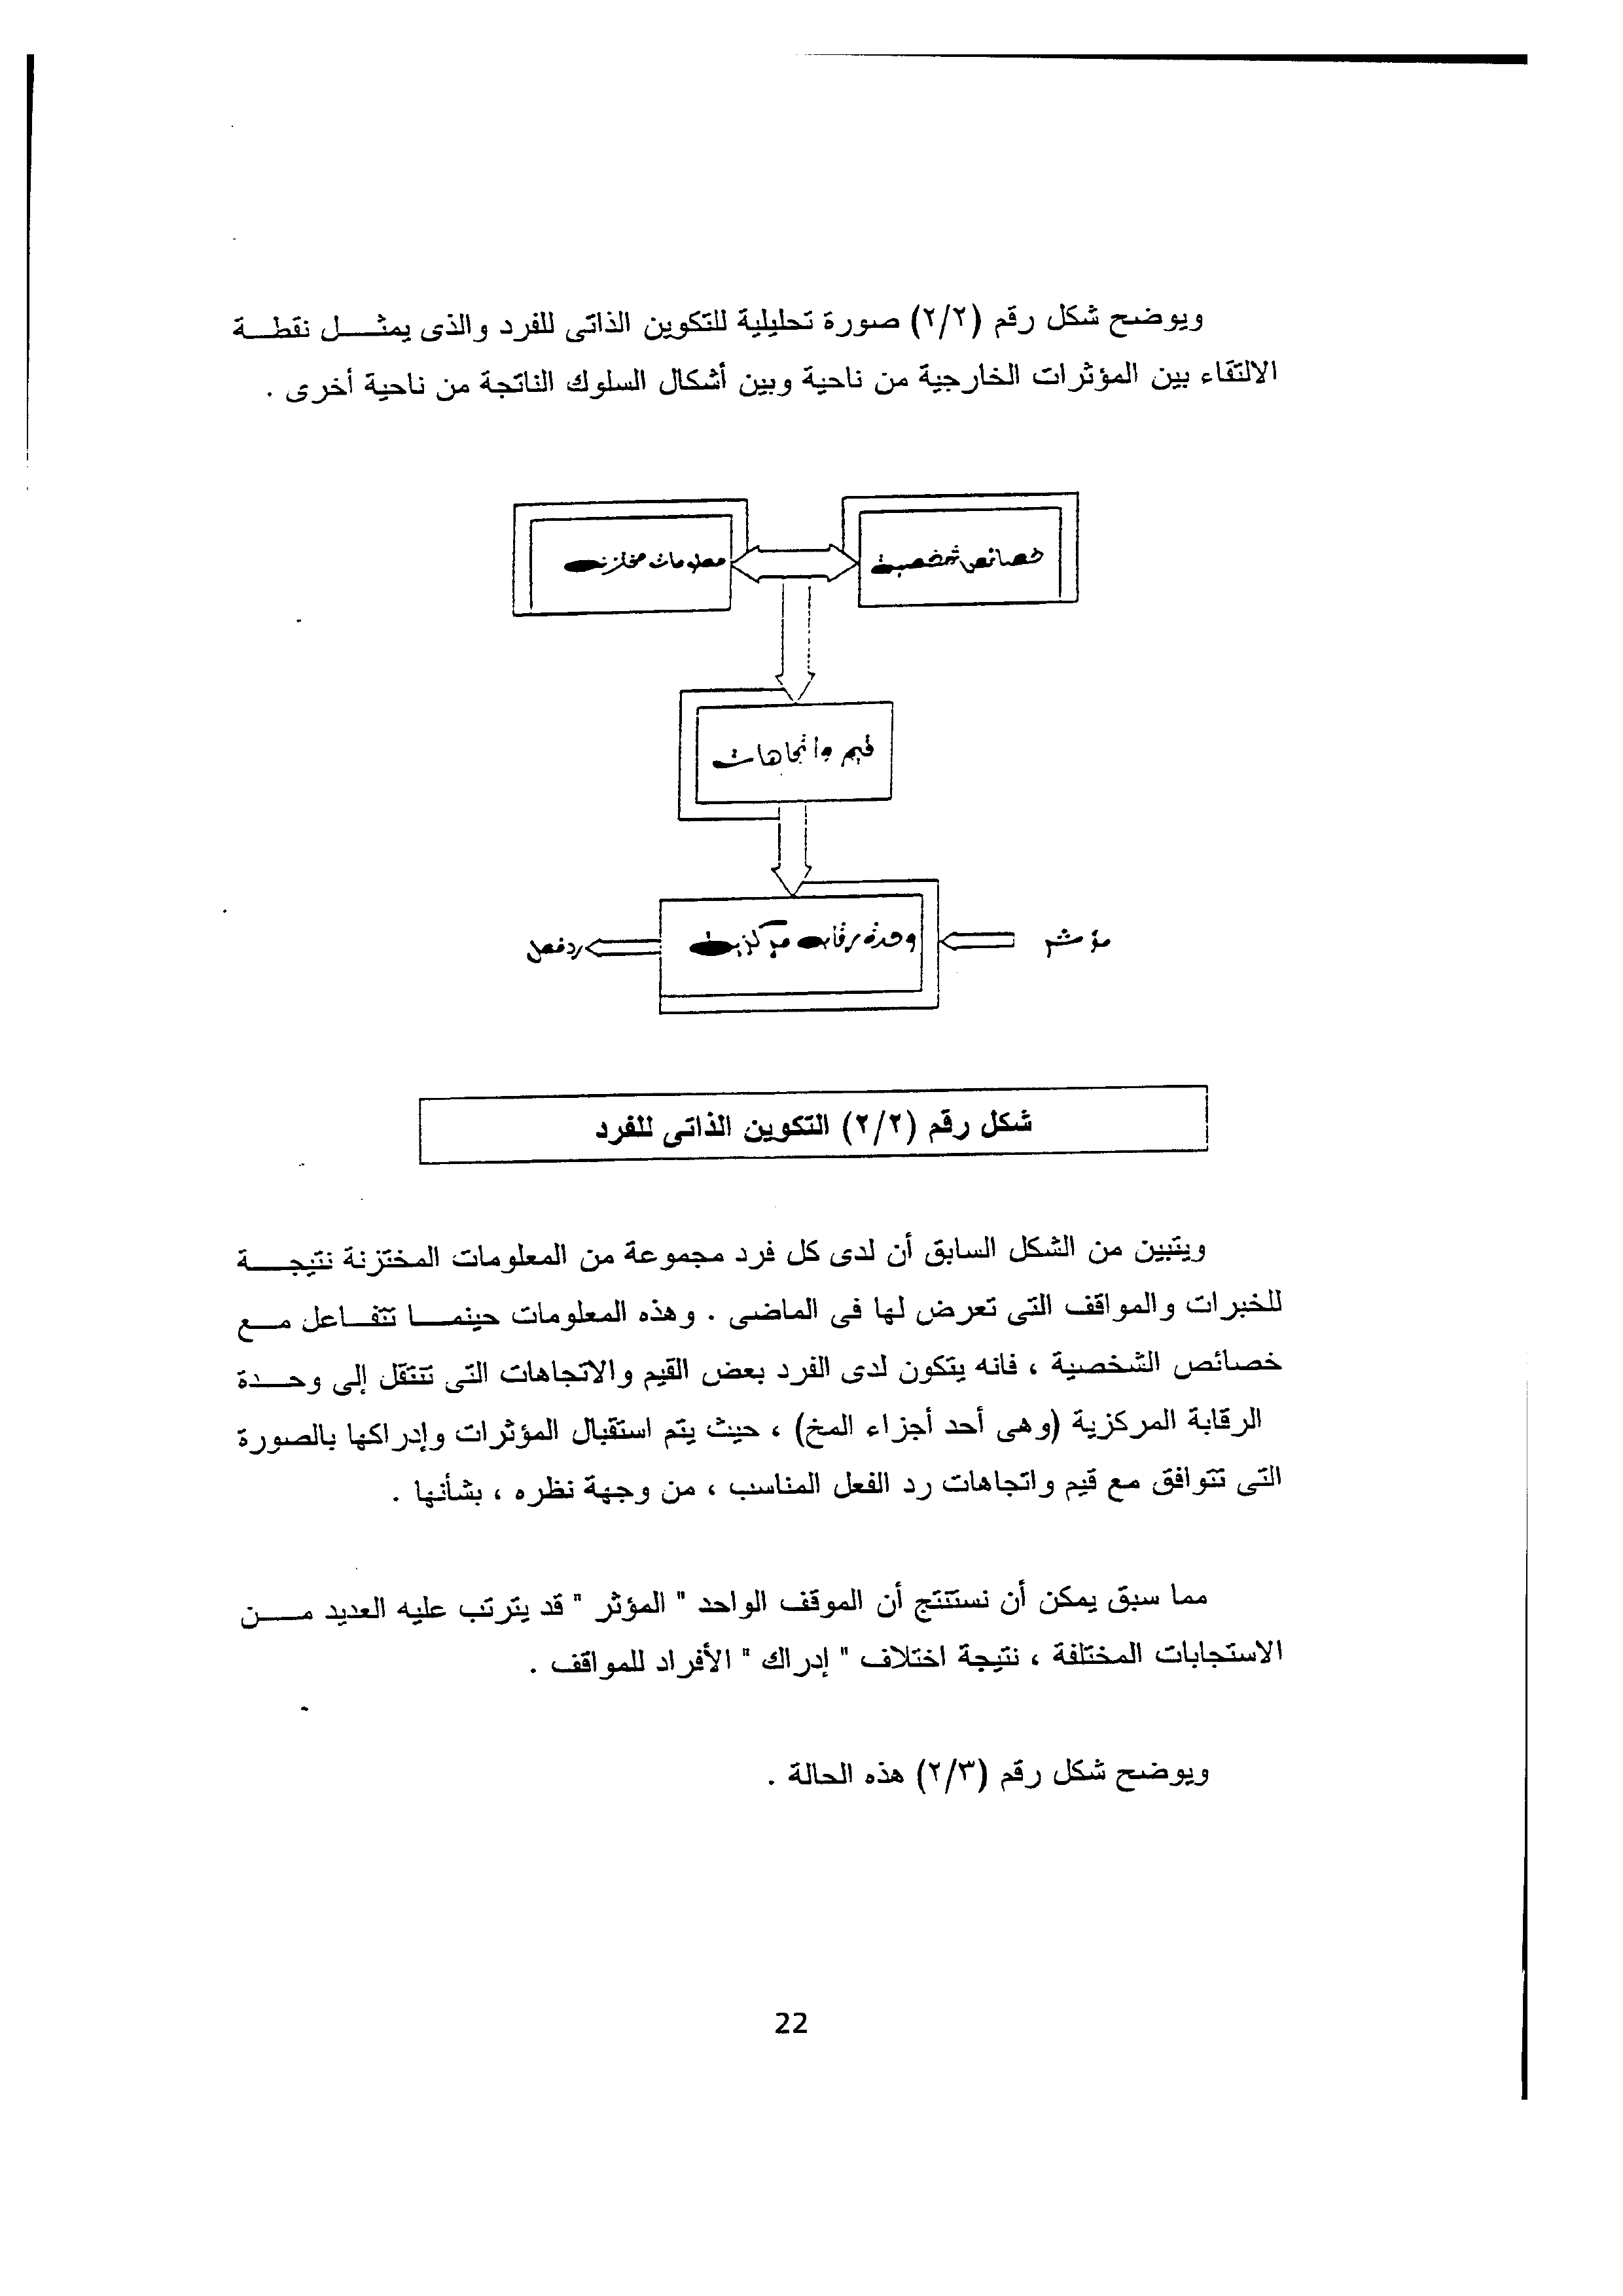 ويوضح شكل رقم (٢/٢) صورة تحليلية للتكوين الذاتى للفرد والذى يمثـــل نقطـــة
الالتقاء بين المؤثرات الخارجية من ناحية وبين أشكال السلوك الناتجة من ناحية أخرى .
خصائص شخصية
معلومات مختزنة
قيم واتجاهات
مؤثر
وحدة رقابة مركزية
رد فعل
شكل رقم (٢/٢) التكوين الذاتى للفرد
ويتبين من الشكل السابق أن لدى كل فرد مجموعة من المعلومات المختزنة نتيجـــة
للخبرات والمواقف التى تعرض لها فى الماضى . وهذه المعلومات حينمـــا تتفـــاعل مـــع
خصائص الشخصية ، فانه يتكون لدى الفرد بعض القيم والاتجاهات التى تنتقل إلى وحـــدة
الرقابة المركزية (وهى أحد أجزاء المخ) ، حيث يتم استقبال المؤثرات وإدراكها بالصورة
التى تتوافق مع قيم واتجاهات رد الفعل المناسب ، من وجهة نظره ، بشأنها .
مما سبق يمكن أن نستنتج أن الموقف الواحد " المؤثر " قد يترتب عليه العديد مـــن
الاستجابات المختلفة ، نتيجة اختلاف " إدراك " الأفراد للمواقف .
ويوضح شكل رقم (٢/٣) هذه الحالة .
22